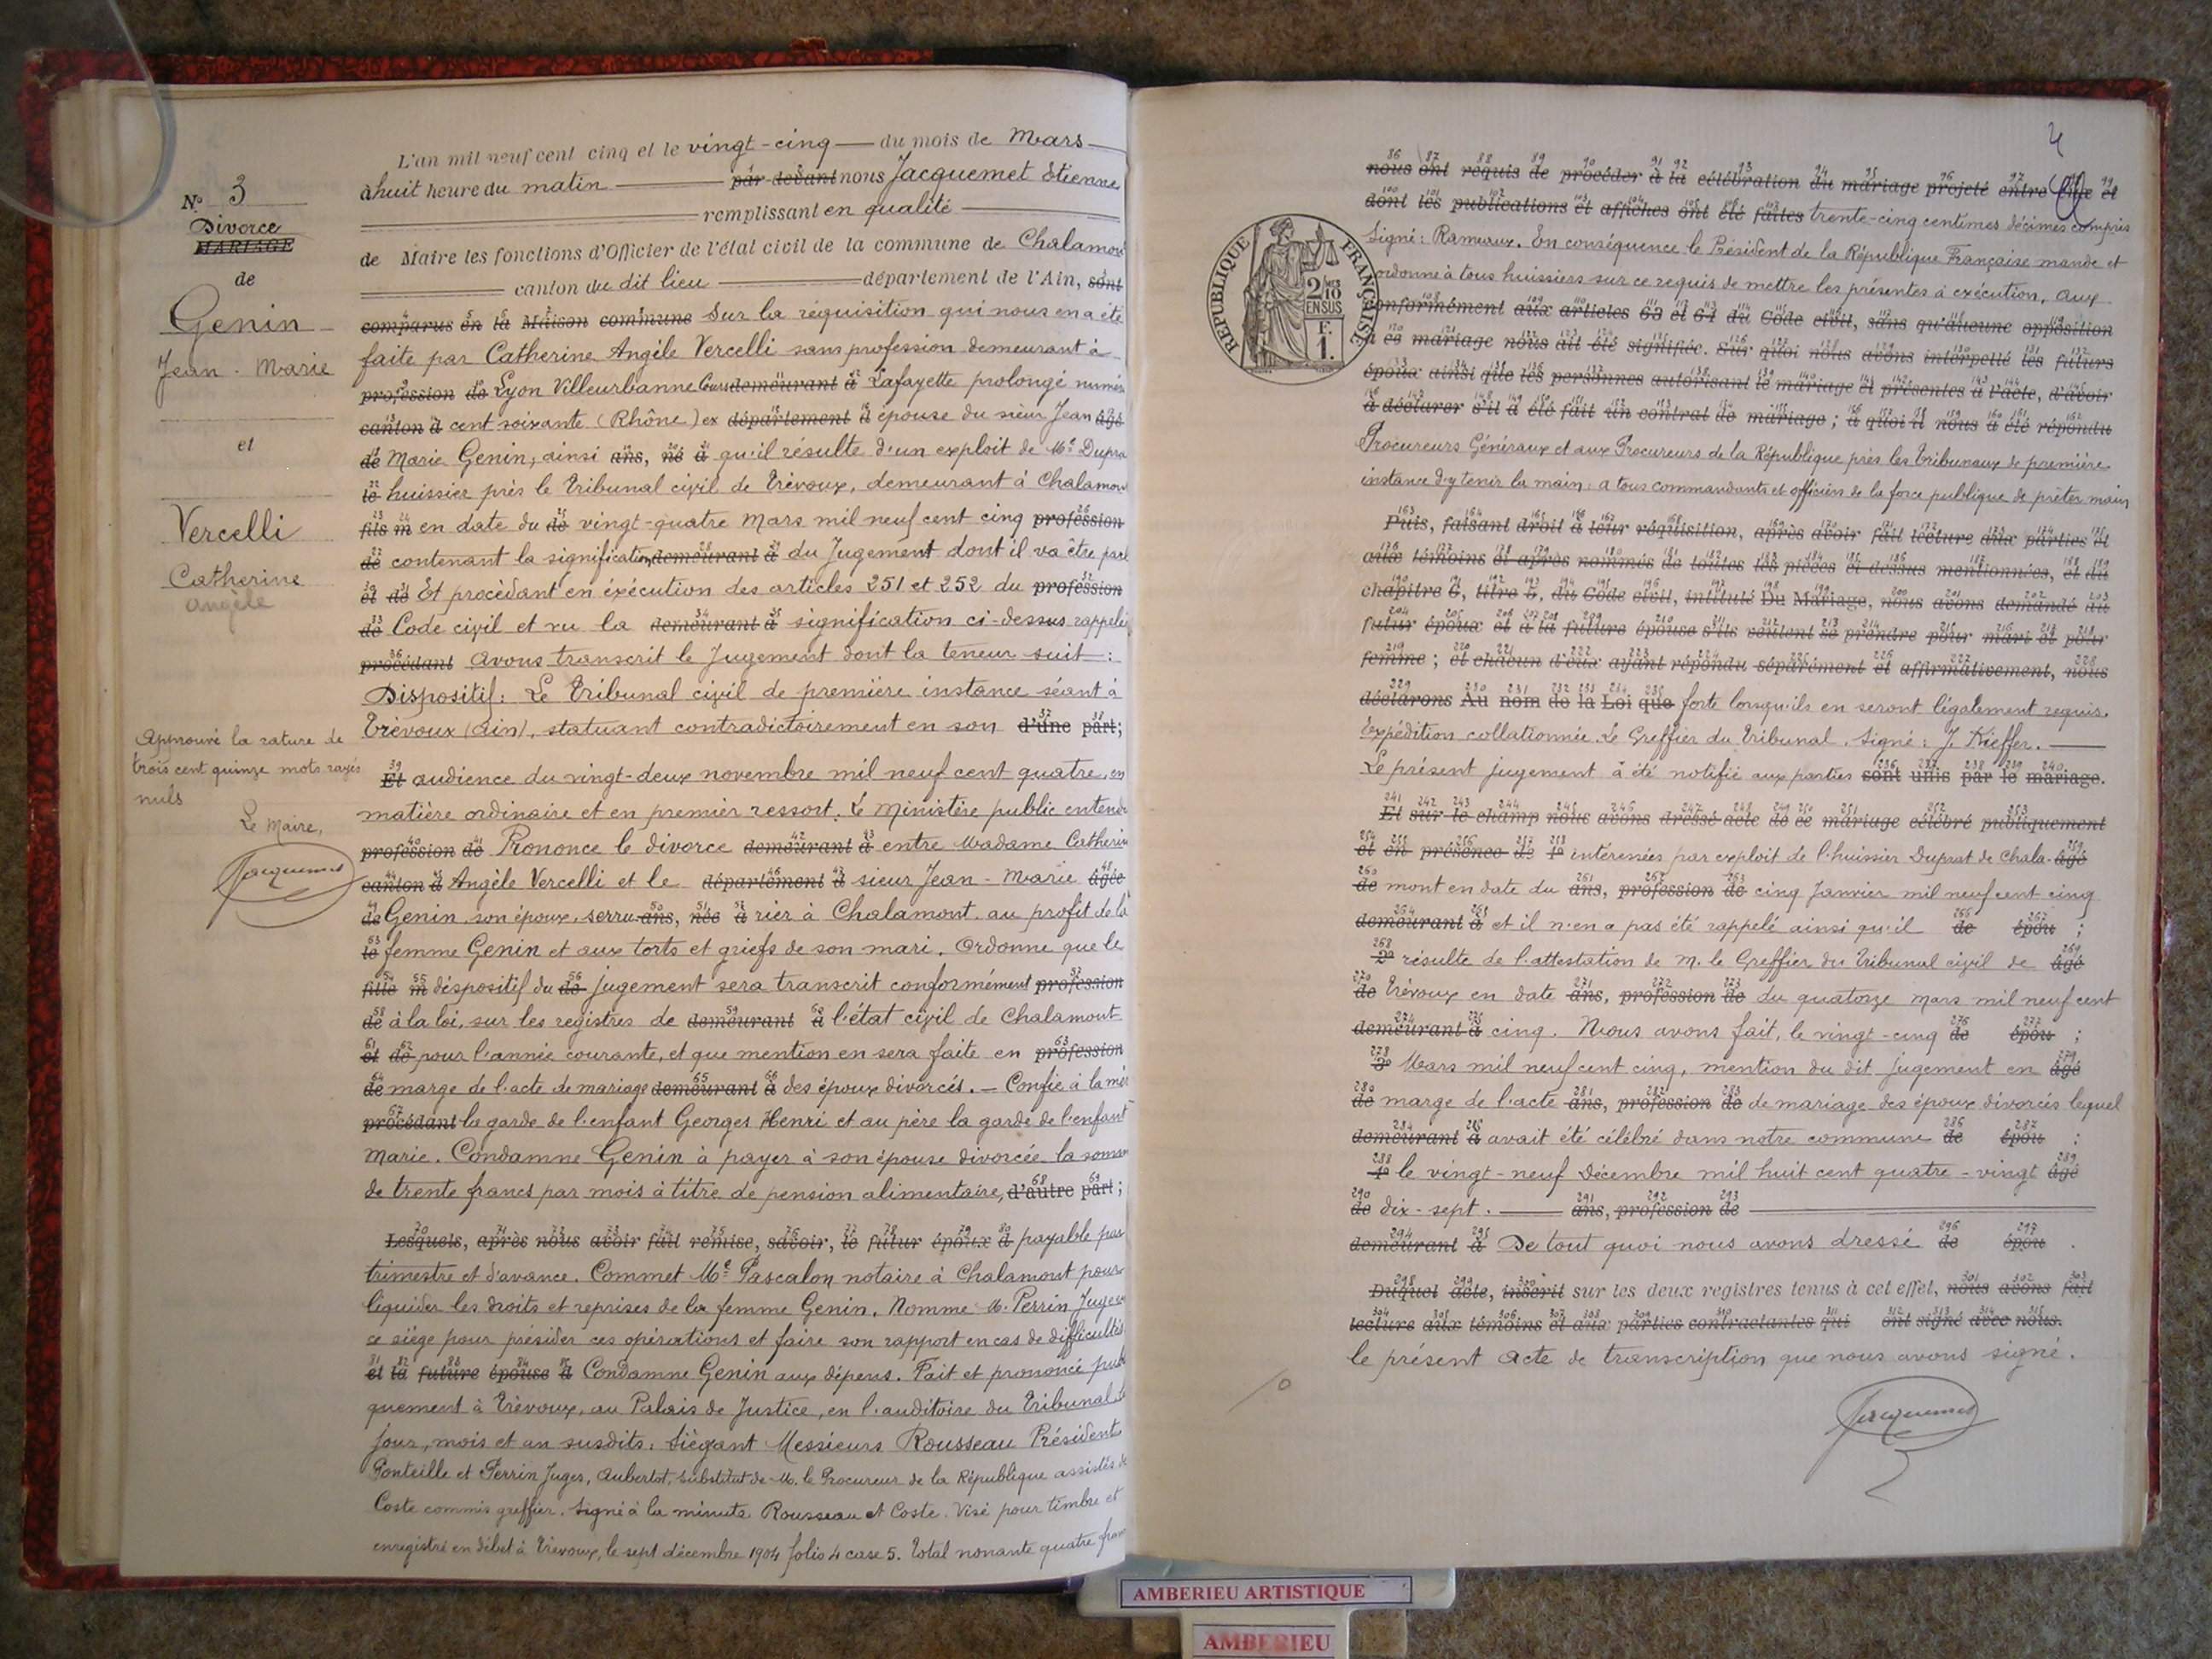 L'an mil neuf cent cinq et le vingt-cinq du mois de Mars
à huit heure du matin par devant nous Jacquemet Etienne
remplissant en qualité
de Maire les fonctions d'Officier de l'état civil de la commune de Chalamont
canton du dit lieu département de l'Ain, sont
comparus en la Maison commune Sur la réquisition qui nous en a été
faite par Catherine Angèle Vercelli sans profession demeurant à
profession de Lyon Villeurbanne Cours demeurant à Lafayette prolongé numéro
canton à cent soixante (Rhône) ex département à épouse du sieur Jean âgé
de Marie Genin, ainsi ans, né à qu'il résulte d'un exploit de Me Dupra
le huissier près le Tribunal civil de Trévoux, demeurant à Chalamon
fils m en date du de vingt-quatre Mars mil neuf cent cinq profession
de contenant la signification demeurant à du Jugement dont il va être parl
et de Et procèdant en éxécution des articles 251 et 252 du profession
de Code civil et vu la demeurant à signification ci-dessus rappelé
procédant avons transcrit le Jugement dont la teneur suit :
Dispositif : Le Tribunal civil de première instance séant à
Trévoux (Ain), statuant contradictoirement en son d'une part;
Et audience du vingt-deux novembre mil neuf cent quatre, en
matière ordinaire et en premier ressort. Le Ministère public entendu
profession de Prononce le divorce demeurant à entre Madame Catherin
canton à Angèle Vercelli et le département à sieur Jean-Marie âgée
de Genin, son époux, serru ans, née à rier à Chalamont au profit de la
le femme Genin et aux torts et griefs de son mari. Ordonne que le
fille m dispositif du de jugement sera transcrit conformément profession
de à la loi, sur les registres de demeurant à l'état civil de Chalamont
et de pour l'année courante, et que mention en sera faite en profession
de marge de l'acte de mariage demeurant à des époux divorcés. - Confie à la mèr
procédant la garde de l'enfant Georges Henri et au père la garde de l'enfant
Marie. Condamne Genin à payer à son épouse divorcée la somm
de trente francs par mois à titre de pension alimentaire, d'autre part;
Lesquels, après nous avoir fait remise, savoir, le futur époux à payable par
trimestre et d'avance. Commet Me Pascalon notaire à Chalamont pour
liquider les droits et reprises de la femme Genin. Nomme M. Perrin Juge
ce siège pour présider ces opérations et faire son rapport en cas de difficultés
et la future épouse à Condamne Genin aux dépens. Fait et prononcé publi
quement à Trévoux, au Palais de Justice, en l'auditoire du Tribunal le
jour, mois et an susdits. Siégeant Messieurs Rousseau Président
Ponteille et Perrin Juges, Aubertot, substitut de M. le Procureur de la République assistés de
Coste commis greffier. Signé à la minute Rousseau et Coste. Visé pour timbre et
enregistré en débet à Trévoux, le sept décembre 1904 folio 4 case 5. Total nonante quatre franc
No 3
Divorce
MARIAGE
de
Genin
Jean-Marie
et
Vercelli
Catherine
Angèle
Approuvé la rature de
trois cent quinze mots rayés
nuls
Le Maire,
Jacquemet
nous ont requis de procéder à la célébration du mariage projeté entre eux et
dont les publications et affiches ont été faites trente-cinq centimes décimes compris
Signé : Rameaux. En conséquence le Président de la République Française mande et
ordonne à tous huissiers sur ce requis de mettre les présentes à exécution, aux
conformément aux articles 63 et 64 du Code civil, sans qu'aucune opposition
à ce mariage nous ait été signifiée. Sur quoi nous avons interpellé les futurs
époux ainsi que les personnes autorisant le mariage et présentes à l'acte, d'avoir
à déclarer s'il a été fait un contrat de mariage ; à quoi il nous a été répondu
Procureurs Généraux et aux Procureurs de la République près les Tribunaux de première
instance d'y tenir la main : a tous commandants et officiers de la force publique de prêter main
Puis, faisant droit à leur réquisition, après avoir fait lecture aux parties et
aux témoins ci-après nommés de toutes les pièces ci-dessus mentionnées, et du
chapitre 6, titre 5, du Code civil, intitulé Du Mariage, nous avons demandé au
futur époux et à la future épouse s'ils veulent se prendre pour mari et pour
femme ; et chacun d'eux ayant répondu séparément et affirmativement, nous
déclarons Au nom de la Loi que forte lorsqu'ils en seront légalement requis.
Expédition collationnée. Le Greffier du Tribunal. Signé : J. Kieffer.
Le présent jugement à été notifié aux parties sont unis par le mariage.
Et sur-le-champ nous avons dressé acte de ce mariage célébré publiquement
et en présence de 1o intéressées par exploit de l'huissier Duprat de Chala- âgé
de mont en date du ans, profession de cinq Janvier mil neuf cent cinq
demeurant à et il n'en a pas été rappelé ainsi qu'il de épou ;
2o résulte de l'attestation de M. le Greffier du Tribunal civil de âgé
de Trévoux en date ans, profession de du quatorze Mars mil neuf cent
demeurant à cinq. Nous avons fait, le vingt-cinq de épou ;
3o Mars mil neuf cent cinq, mention du dit Jugement en âgé
de marge de l'acte ans, profession de de mariage des époux divorcés lequel
demeurant à avait été célébré dans notre commune de épou ;
4o le vingt-neuf Décembre mil huit cent quatre-vingt âgé
de dix-sept. ans, profession de
demeurant à De tout quoi nous avons dressé de épou .
Duquel acte, inscrit sur les deux registres tenus à cet effet, nous avons fait
lecture aux témoins et aux parties contractantes qui ont signé avec nous.
le présent acte de transcription que nous avons signé.
Jacquemet
RÉPUBLIQUE FRANÇAISE
AMBERIEU ARTISTIQUE
AMBERIEU